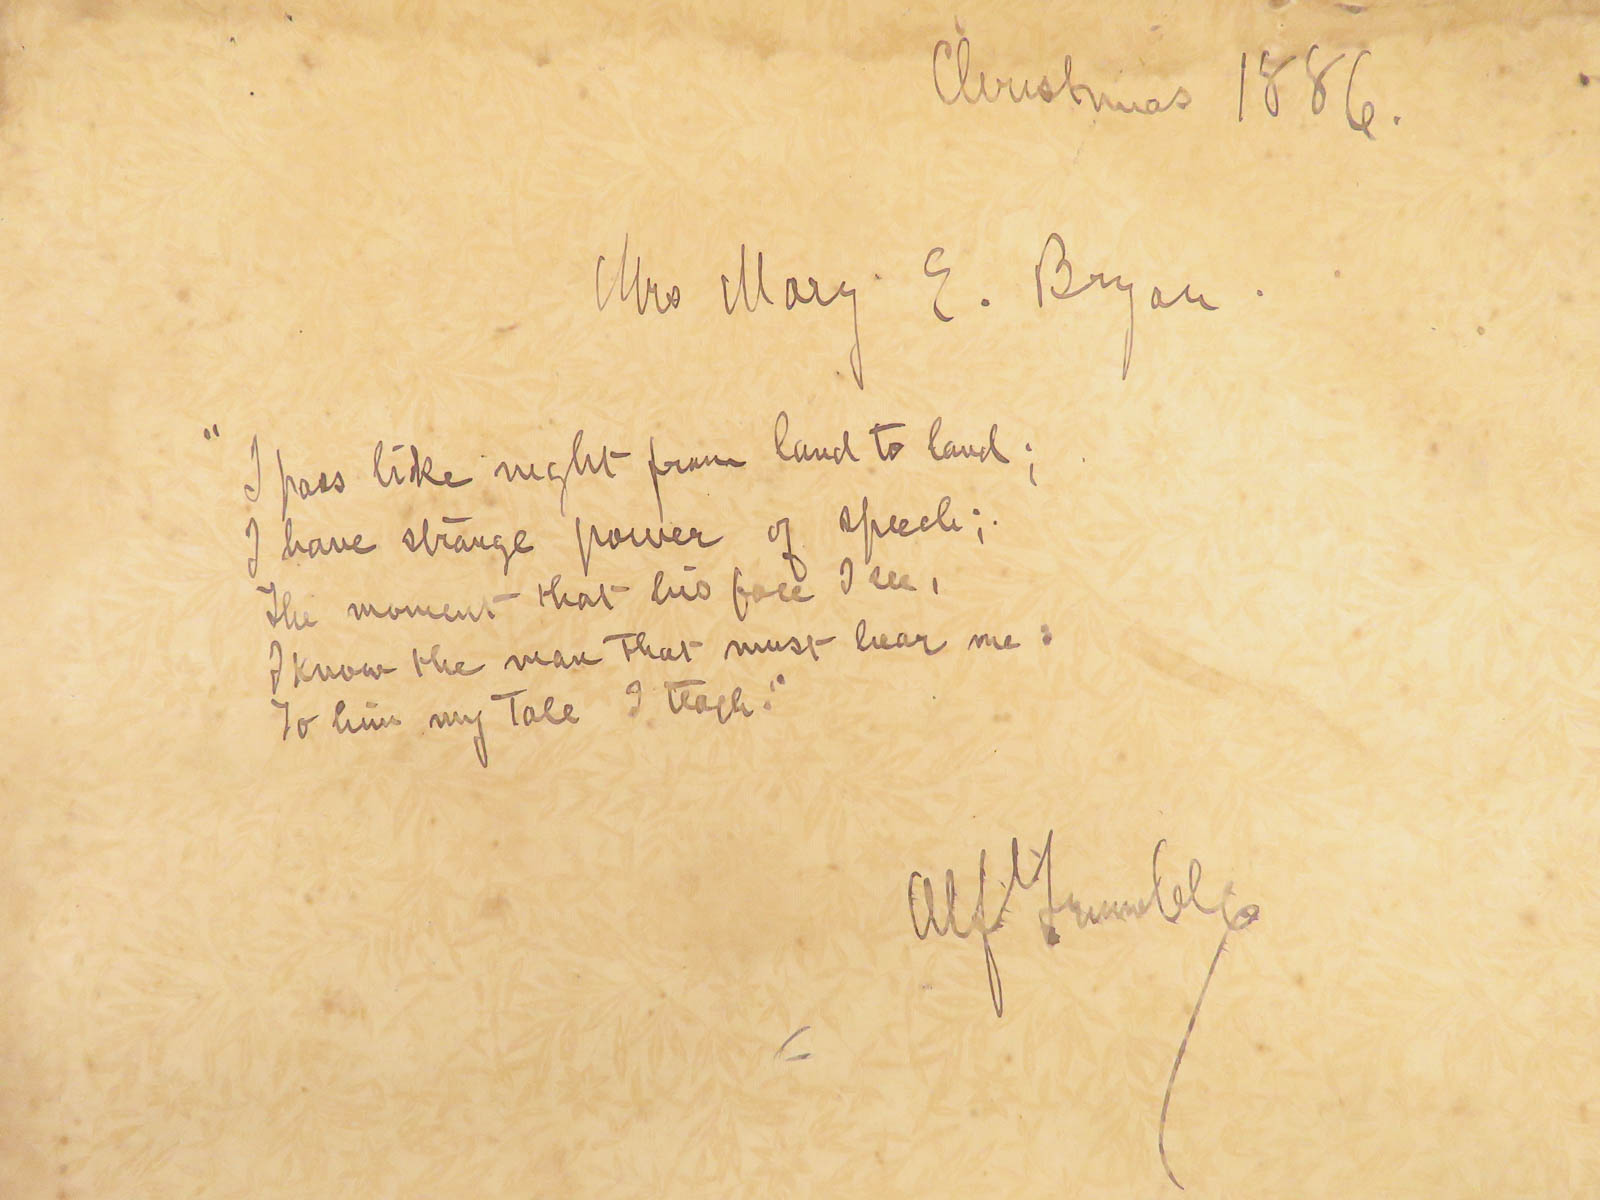 Christmas 1886.
Mrs Mary E. Bryan.
"I pass like night from land to land;
I have strange power of speech;
The moment that his face I see,
I know the man that must hear me:
To him my tale I teach."
Alf Trumble